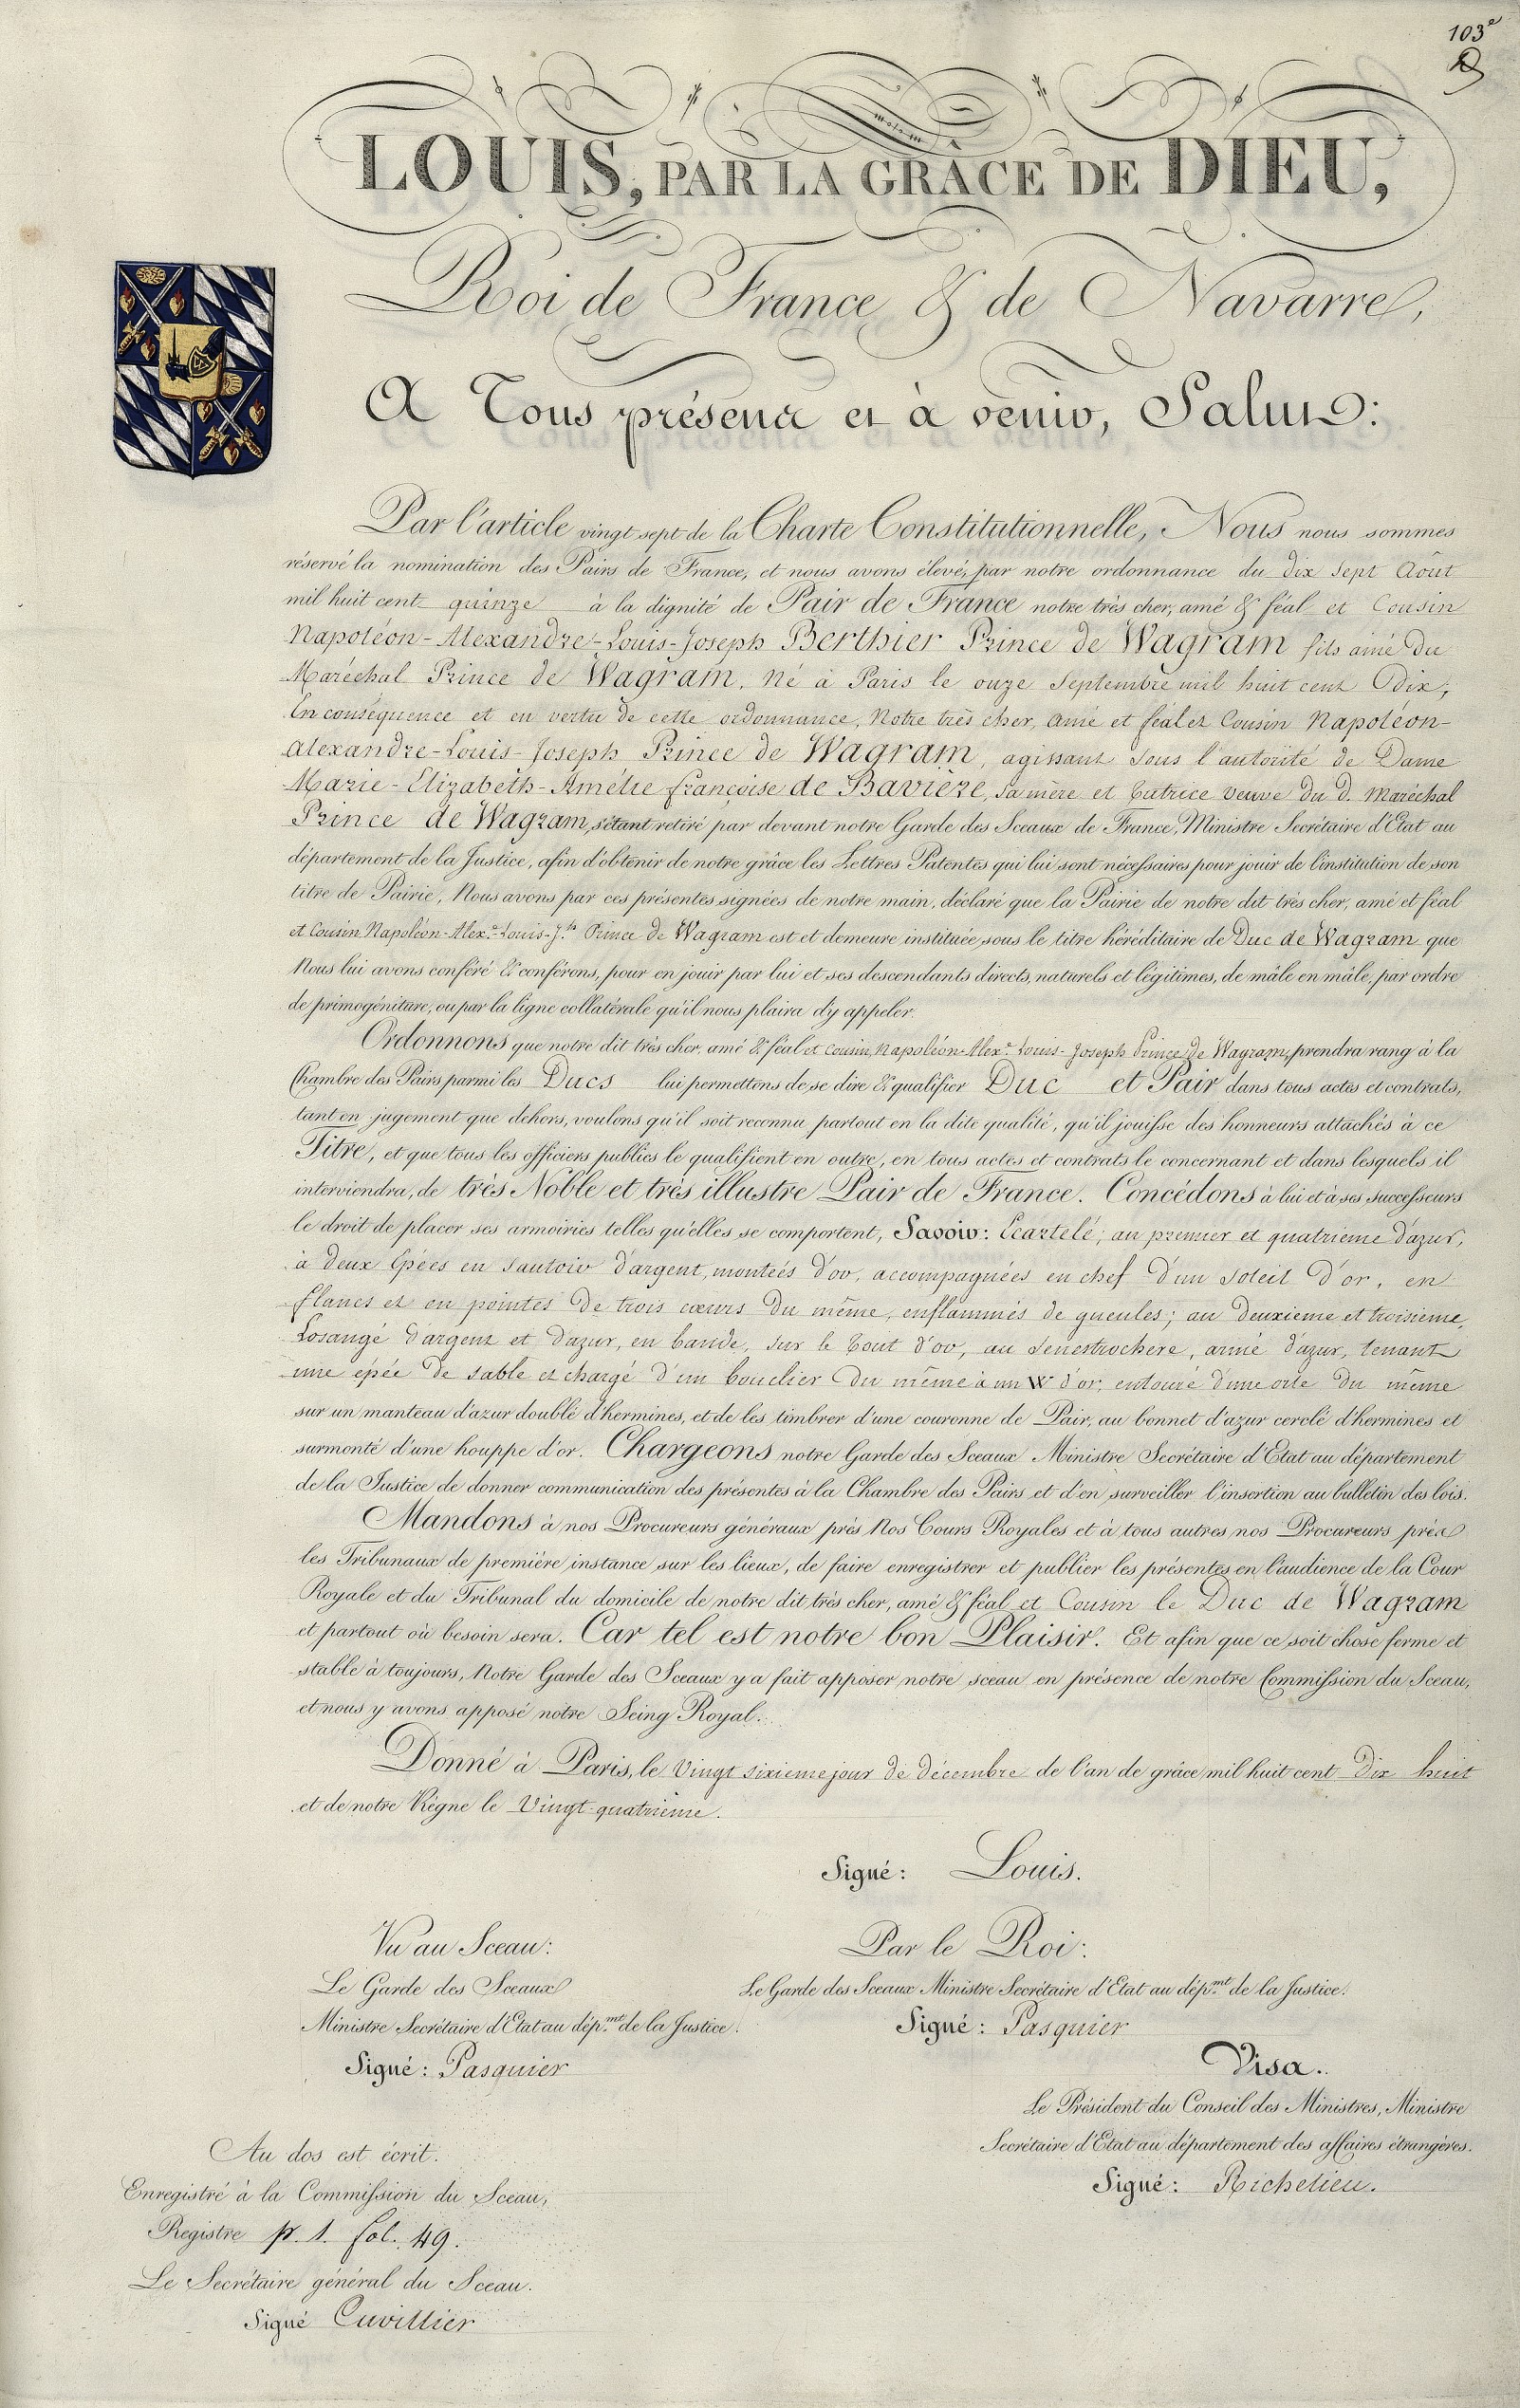 103e
LOUIS, PAR LA GRÂCE DE DIEU,
Roi de France & de Navarre,
A Tous présens et à venir, Salut:
Par l'article vingt sept de la Charte Constitutionnelle, Nous nous sommes
réservé la nomination des Pairs de France, et nous avons élevé, par notre ordonnance du dix sept Août
mil huit cent quinze à la dignité de Pair de France notre très cher, amé & féal et Cousin
Napoléon-Alexandre-Louis-Joseph Berthier Prince de Wagram fils ainé du
Maréchal Prince de Wagram, né à Paris le onze Septembre mil huit cent Dix;
En conséquence et en vertu de cette ordonnance, Notre très cher, amé et féal et Cousin Napoléon-
Alexandre-Louis-Joseph Prince de Wagram, agissant sous l'autorité de Dame
Marie-Elizabeth-Amélie françoise de Bavière, sa mère et tutrice veuve du d. Maréchal
Prince de Wagram, s'étant retiré par devant notre Garde des Sceaux de France, Ministre Secrétaire d'Etat au
département de la Justice, afin d'obtenir de notre grâce les Lettres Patentes qui lui sont nécessaires pour jouir de l'institution de son
titre de Pairie, Nous avons par ces présentes signées de notre main, déclaré que la Pairie de notre dit très cher, amé et féal
et Cousin Napoléon-Alex.e-Louis-J.ph Prince de Wagram est et demeure instituée sous le titre héréditaire de Duc de Wagram que
Nous lui avons conféré & conférons, pour en jouir par lui et ses descendants directs, naturels et légitimes, de mâle en mâle, par ordre
de primogéniture, ou par la ligne collatérale qu'il nous plaira d'y appeler.
Ordonnons que notre dit très cher, amé & féal et Cousin, Napoléon-Alex.e Louis-Joseph Prince de Wagram, prendra rang à la
Chambre des Pairs parmi les Ducs lui permettons de se dire & qualifier Duc et Pair dans tous actes et contrats,
tant en jugement que dehors, voulons qu'il soit reconnu partout en la dite qualité, qu'il jouisse des honneurs attachés à ce
Titre, et que tous les officiers publics le qualifient en outre, en tous actes et contrats le concernant et dans lesquels il
interviendra, de très Noble et très illustre Pair de France. Concédons à lui et à ses successeurs
le droit de placer ses armoiries telles qu'elles se comportent, Savoir: Ecartelé, au premier et quatrieme d'azur,
à deux épées en sautoir d'argent, montées d'or, accompagnées en chef d'un soleil d'or, en
flancs et en pointes de trois cœurs du même, enflammés de gueules; au deuxieme et troisieme,
Losangé d'argent et d'azur, en bande, sur le tout d'or, au senestrochere, armé d'azur, tenant
une épée de sable et chargé d'un bouclier du même à un W d'or, entouré d'une orle du même
sur un manteau d'azur doublé d'hermines, et de les timbrer d'une couronne de Pair, au bonnet d'azur cerclé d'hermines et
surmonté d'une houppe d'or. Chargeons notre Garde des Sceaux Ministre Secrétaire d'Etat au département
de la Justice de donner communication des présentes à la Chambre des Pairs et d'en surveiller l'insertion au bulletin des lois.
Mandons à nos Procureurs généraux près Nos Cours Royales et à tous autres nos Procureurs près
les Tribunaux de première instance sur les lieux, de faire enregistrer et publier les présentes en l'audience de la Cour
Royale et du Tribunal du domicile de notre dit très cher, amé & féal et Cousin le Duc de Wagram
et partout où besoin sera. Car tel est notre bon Plaisir. Et afin que ce soit chose ferme et
stable à toujours, Notre Garde des Sceaux y a fait apposer notre sceau en présence de notre Commission du Sceau,
et nous y avons apposé notre Seing Royal.
Donné à Paris, le Vingt sixieme jour de décembre de l'an de grâce mil huit cent Dix huit
et de notre Règne le Vingt-quatrième.
Signé: Louis.
Vu au Sceau:
Le Garde des Sceaux
Ministre Secrétaire d'Etat au dép.mt de la Justice.
Signé: Pasquier
Par le Roi:
Le Garde des Sceaux Ministre Secrétaire d'Etat au dép.mt de la Justice.
Signé: Pasquier
Visa.
Le Président du Conseil des Ministres, Ministre
Secrétaire d'Etat au département des affaires étrangères.
Signé: Richelieu.
Au dos est écrit.
Enregistré à la Commission du Sceau,
Registre pr. 1. fol. 49.
Le Secrétaire général du Sceau.
Signé Cuvillier